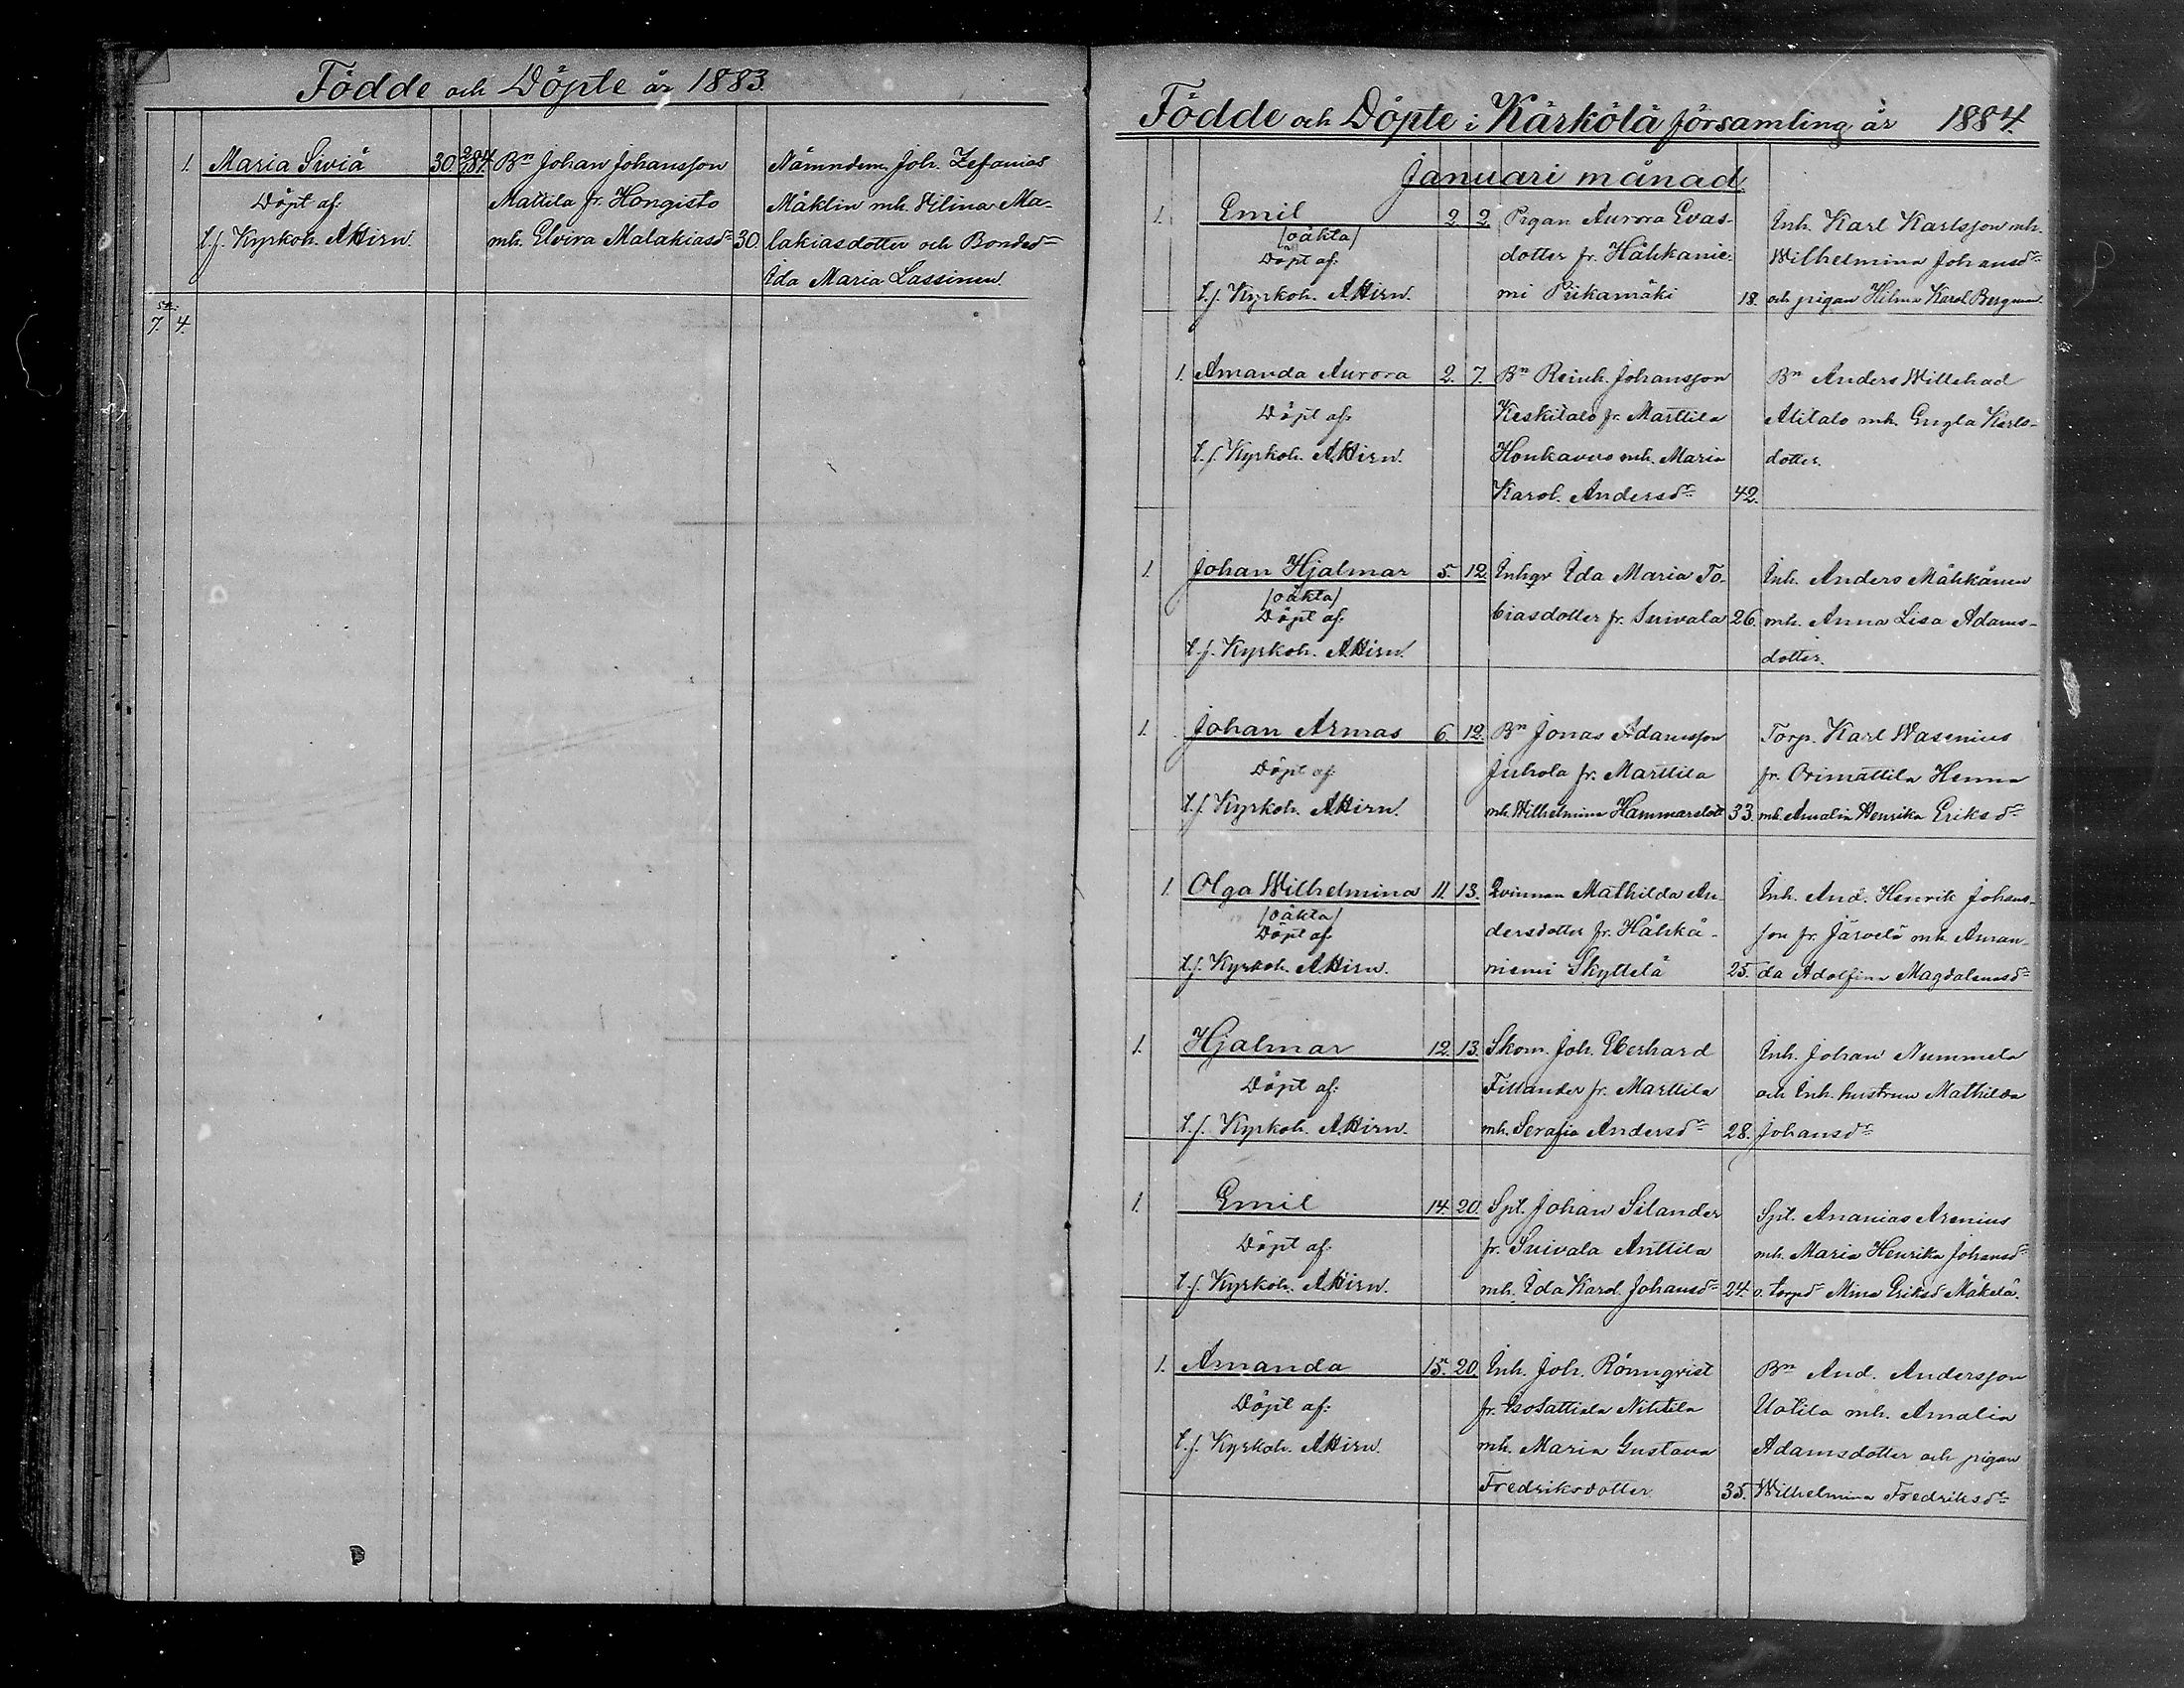 Födde och Döpte år 1883.
1. Maria Siviä 30. 2/1 84. Bn Johan Johansson Nämndem. Joh. Zefanias
Döpt af: Mattila fr. Hongisto Mäklin mh. Vilina Ma-
t.f. Kyrkoh. A. Hirn. mh. Elvira Malakiasdr 30. lakiasdotter och Bondedr
Ida Maria Lassinen.
Sa:
7. 4.
Födde och Döpte i Kärkölä församling år 1884.
Januari månad.
1. Emil 2. 2. Pigan Aurora Evas- Inh. Karl Karlsson mh.
/oäkta/
Döpt af: dotter fr. Hähkänie- Wilhelmina Johansdr
t.f. Kyrkoh. A. Hirn. mi Piikamäki 18. och pigan Hilma Karol. Bergman.
1. Amanda Aurora 2. 7. Bn Reinh. Johansson Bn Anders Willehad
Döpt af: Keskitalo fr. Marttila Alitalo mh. Engla Karls-
t.f. Kyrkoh. A. Hirn. Honkavuo mh. Maria dotter.
Karol. Andersdr 42.
1. Johan Hjalmar 5. 12. Inhqv Ida Maria To- Inh. Anders Mähkänen
/oäkta/
Döpt af: biasdotter fr. Suivala 26. mh. Anna Lisa Adams-
t.f. Kyrkoh. A. Hirn. dotter.
1. Johan Armas 6. 12. Bn Jonas Adamsson Torp. Karl Wasenius
Döpt af: Juhola fr. Marttila fr. Orimattila Henna
t.f. Kyrkoh. A. Hirn. mh. Wilhelmina Hammarstedt 33. mh. Amalia Henrika Eriksdr
1. Olga Wilhelmina 11. 13. Qvinnan Mathilda An- Inh. And. Henrik Johans-
/oäkta/
Döpt af: dersdotter fr. Hähkä- son fr. Järvelä mh. Aman-
t.f. Kyrkoh. A. Hirn. niemi Skyttelä 25. da Adolfina Magdalenasdr
1. Hjalmar 12. 13. Skom. Joh. Eberhard Inh. Johan Nummela
Döpt af: Fillander fr. Marttila och Inh. hustrun Mathilda
t.f. Kyrkoh. A. Hirn. mh. Serafia Andersdr 28. Johansdr
1. Emil 14. 20. Spl. Johan Silander Spl. Ananias Arenius
Döpt af: fr. Suivala Anttila mh. Maria Henrika Johansdr
t.f. Kyrkoh. A. Hirn. mh. Ida Karol. Johansdr 24. o. torpd Mina Eriksd Mäkelä.
1. Amanda 15. 20. Inh. Joh. Rönnqvist Bn And. Andersson
Döpt af: fr. Isosattiala Nihtila Uotila mh. Amalia
t.f. Kyrkoh. A. Hirn. mh. Maria Gustava Adamsdotter och pigan
Fredriksdotter 35. Wilhelmina Fredriksdr